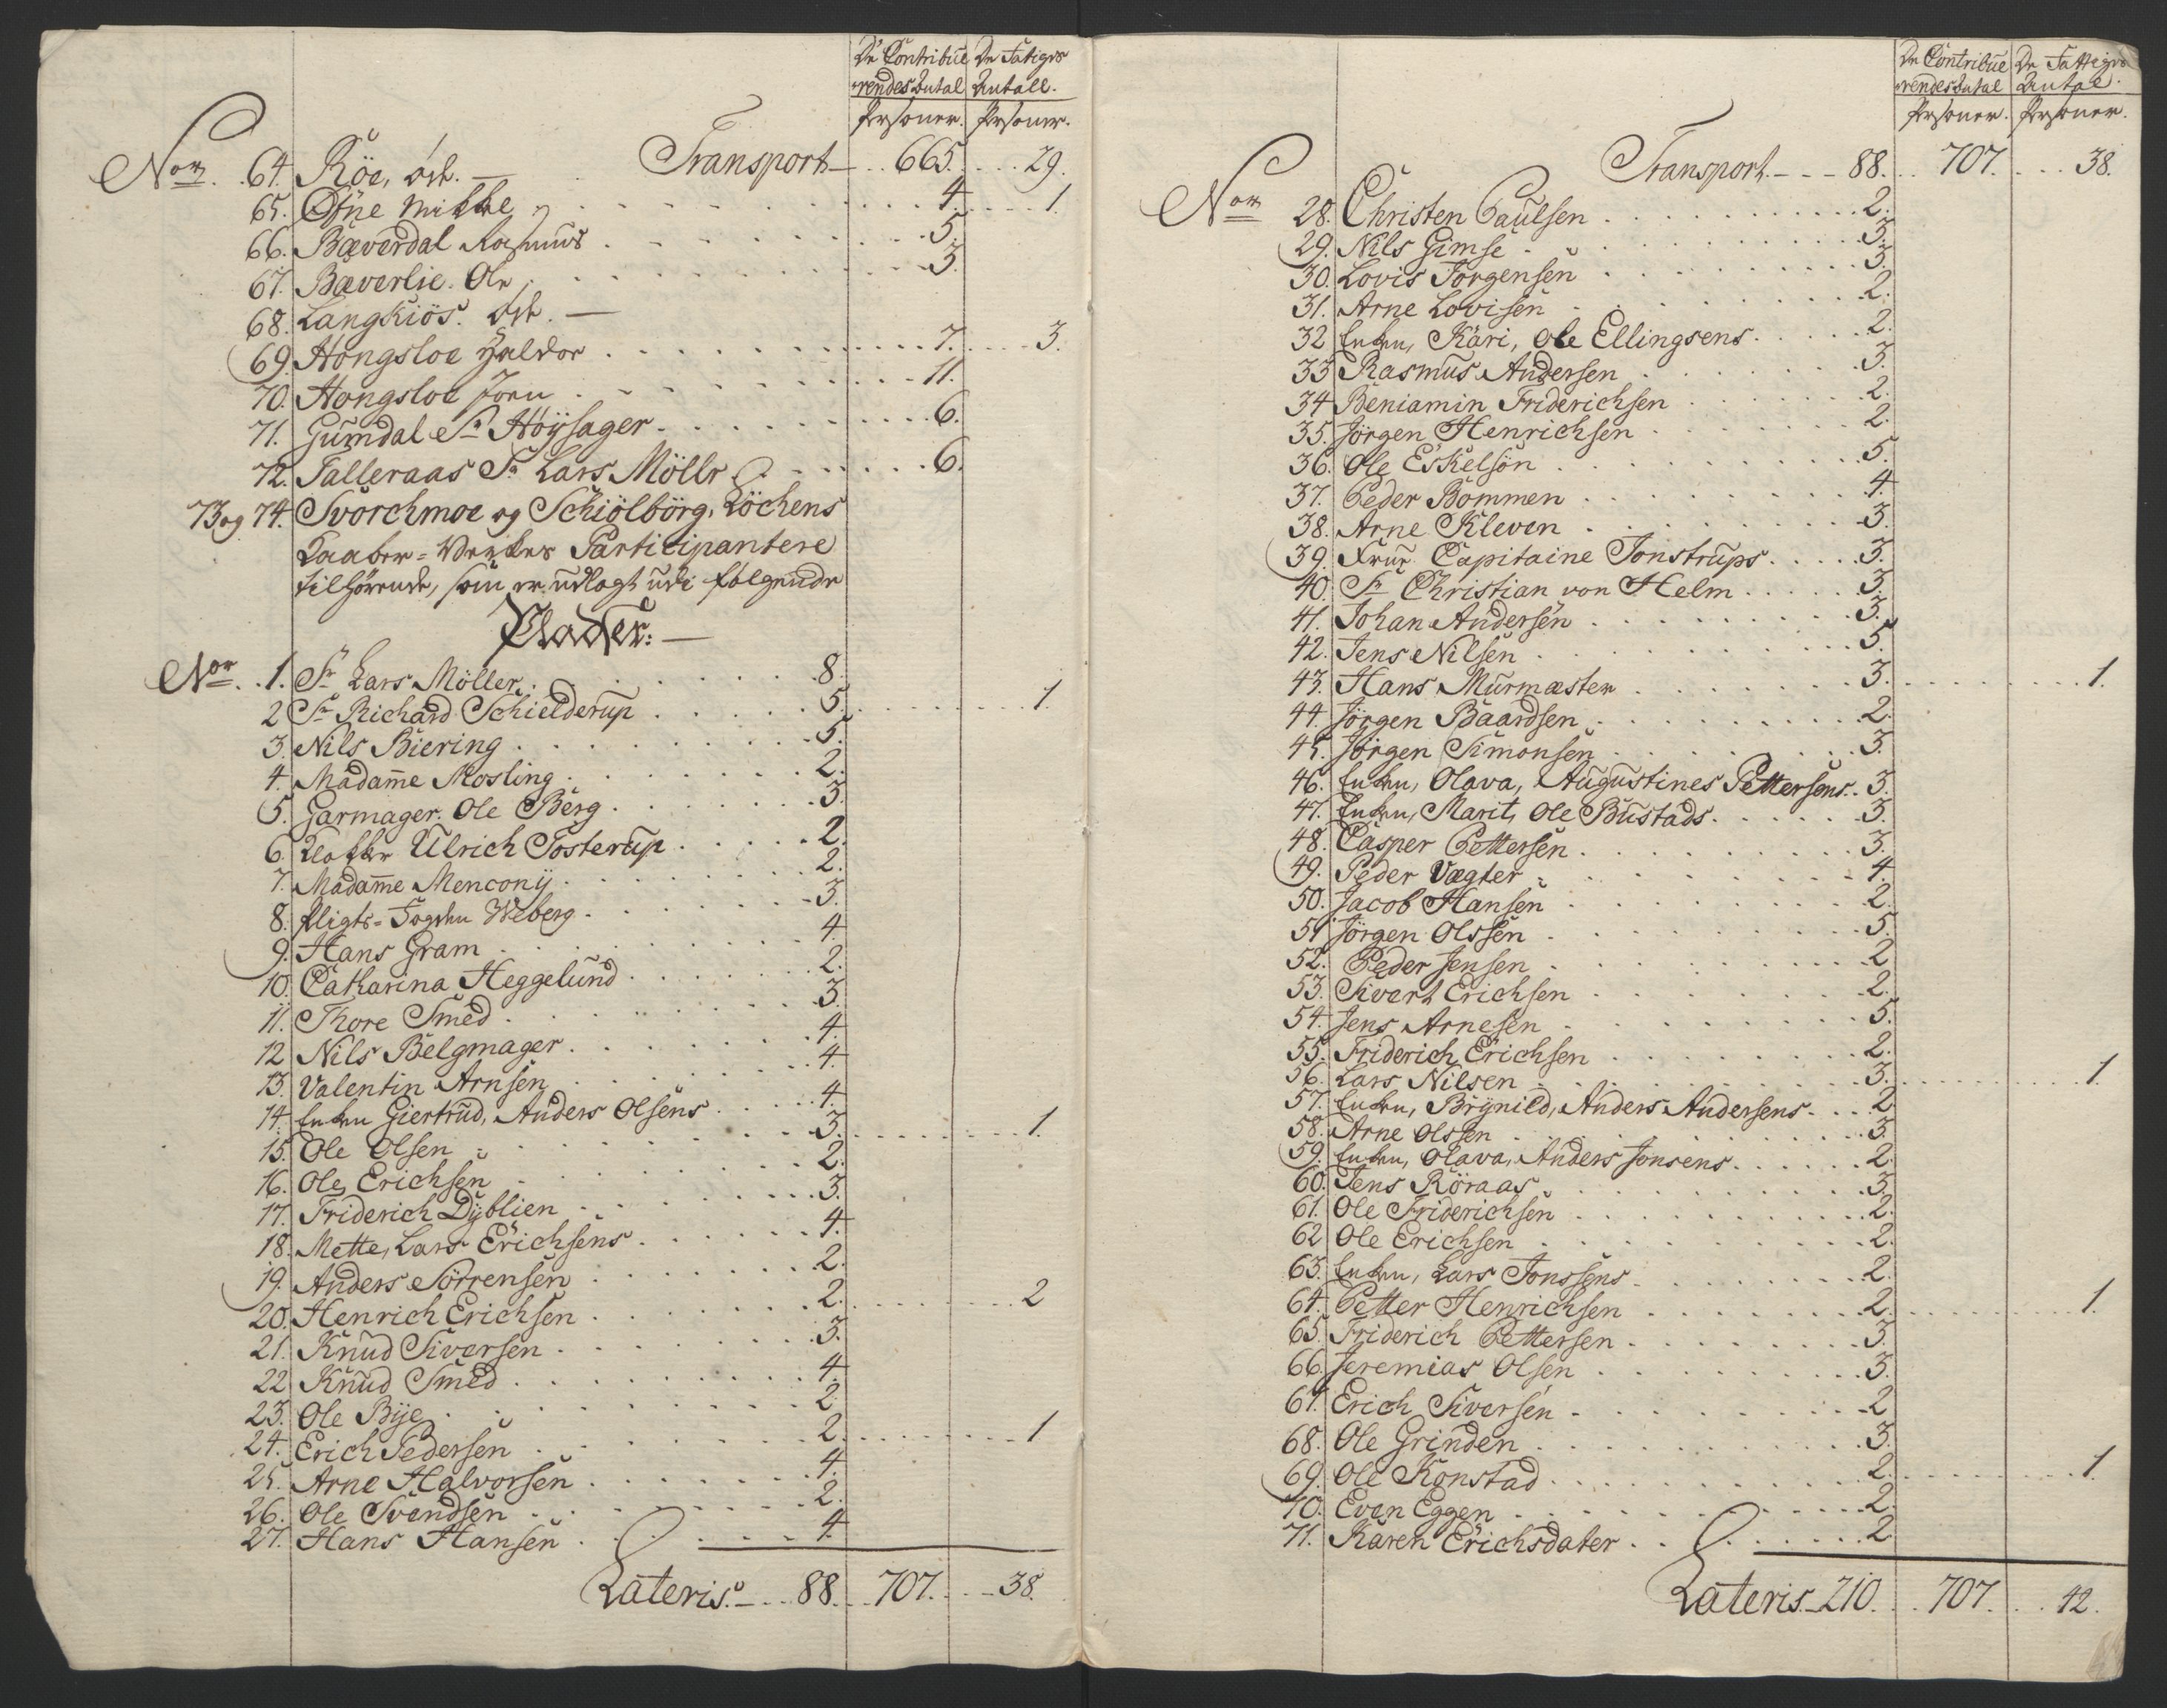 De Contribue De Fatiges
rendes Antal Antall.
Personer. Personer.
Transport 665. 29.
Nor 64. Röe, öde.
65. Öÿne Mikkel 4. 1.
66. Bæverdal Rasmus 5.
67. Bæverlie. Ole 3.
68. Langkiös. öde.
69. Hongsloe Haldor 7. 3.
70. Hongsloe Joen 11.
71. Gumdal Sr Höÿsager 6.
72. Talleraas Sr Lars Möller 6.
73 og 74. Svorchmoe og Schiölbörg, Löchens
Kaaber-Verckes Participantere
tilhörende, som er udlagt udi fölgende
Pladser:
Nor 1. Sr Lars Möller 8.
2 Sr Richard Schielderup 5. 1.
3. Nils Biering 5.
4. Madame Mosling 2.
5. Garmager. Ole Berg 3.
6. Klokker Ulrich Tosterup 2.
7. Madame Menconÿ 2.
8. Stigts-Fogden Weberg 3.
9. Hans Gram 4.
10. Catharina Heggelund 2.
11. Thore Smed 3.
12 Nils Belgmager 4.
13. Valentin Arnsen 4.
14. Enken Giertrud, Anders Olsens 4.
15. Ole Olsen 3. 1.
16. Ole Erichsen 2.
17. Friderich Dÿblien 3.
18. Mette, Lars Erichsens 4.
19. Anders Sörrensen 2.
20. Henrich Erichsen 2. 2
21. Knud Siversen 3.
22 Knud Smed 4.
23. Ole Bÿe 2.
24. Erich Pedersen 2. 1
25. Arne Halvorsen 4.
26. Ole Svendsen 2.
27. Hans Hansen 4.
Lateris. 88. 707. 38.
De Contribue De Fattiges
rendes Antal Antal.
Personer. Personer.
Transport. 88. 707. 38.
Nor 28. Christen Paulsen 2.
29. Nils Gimse 3.
30. Lovis Jörgensen 3.
31. Arne Lovisen 2.
32 Enken, Kari, Ole Ellingsens 2.
33 Rasmus Andersen 3.
34 Beniamin Friderichsen 2.
35. Jörgen Henrichsen 2.
36. Ole Eskelsön 5.
37. Peder Bommen 4.
38. Arne Kleven 3.
39. Frue Capitaine Jonstrups 3.
40. Sr Christian von Helm 3.
41. Johan Andersen 3.
42. Jens Nilsen 5.
43. Hans Murmæster 3. 1.
44. Jörgen Baardsen 2.
45. Jörgen Simonsen 3.
46. Enken, Olava, Augustines Pettersens 3.
47. Enken, Marit, Ole Bustads 3.
48. Casper Pettersen 3.
49. Peder Vægter 4.
50. Jacob Hansen 2.
51 Jörgen Olssen 5.
52. Peder Jensen 2
53. Sivert Erichsen 2.
54. Jens Arnesen 5.
55. Friderich Erichsen 2.
56. Lars Nilsen 3. 1.
57. Enken, Brÿnild, Anders Andersens 2
58. Arne Olssen 3.
59. Enken, Olava, Anders Jonsens 2.
60. Jens Röraas 3.
61. Ole Friderichsen 2.
62 Ole Erichsen 2.
63. Enken, Lars Jonssens 2.
64. Petter Henrichsen 2. 1.
65. Friderich Pettersen 3.
66. Jeremias Olsen 3.
67. Erich Siversen 2
68. Ole Grinden 3.
69. Ole Konstad 2. 1.
70. Even Eggen 2.
71. Karen Erichsdater 2.
Lateris. 210. 707. 42.